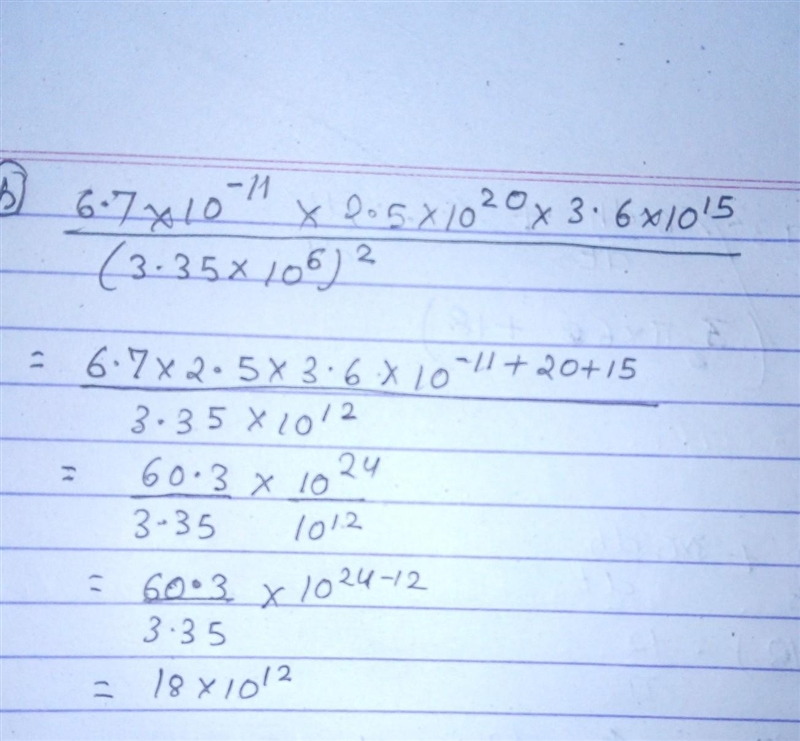 b) 6.7×10^-11 × 2.5×10^20 × 3.6×10^15
(3.35×10^6)^2
= 6.7×2.5×3.6×10^-11+20+15
3.35×10^12
= 60.3 × 10^24
3.35 10^12
= 60.3 × 10^24-12
3.35
= 18×10^12